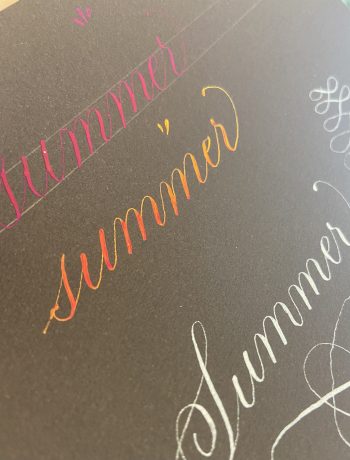 summer
summer
Summer